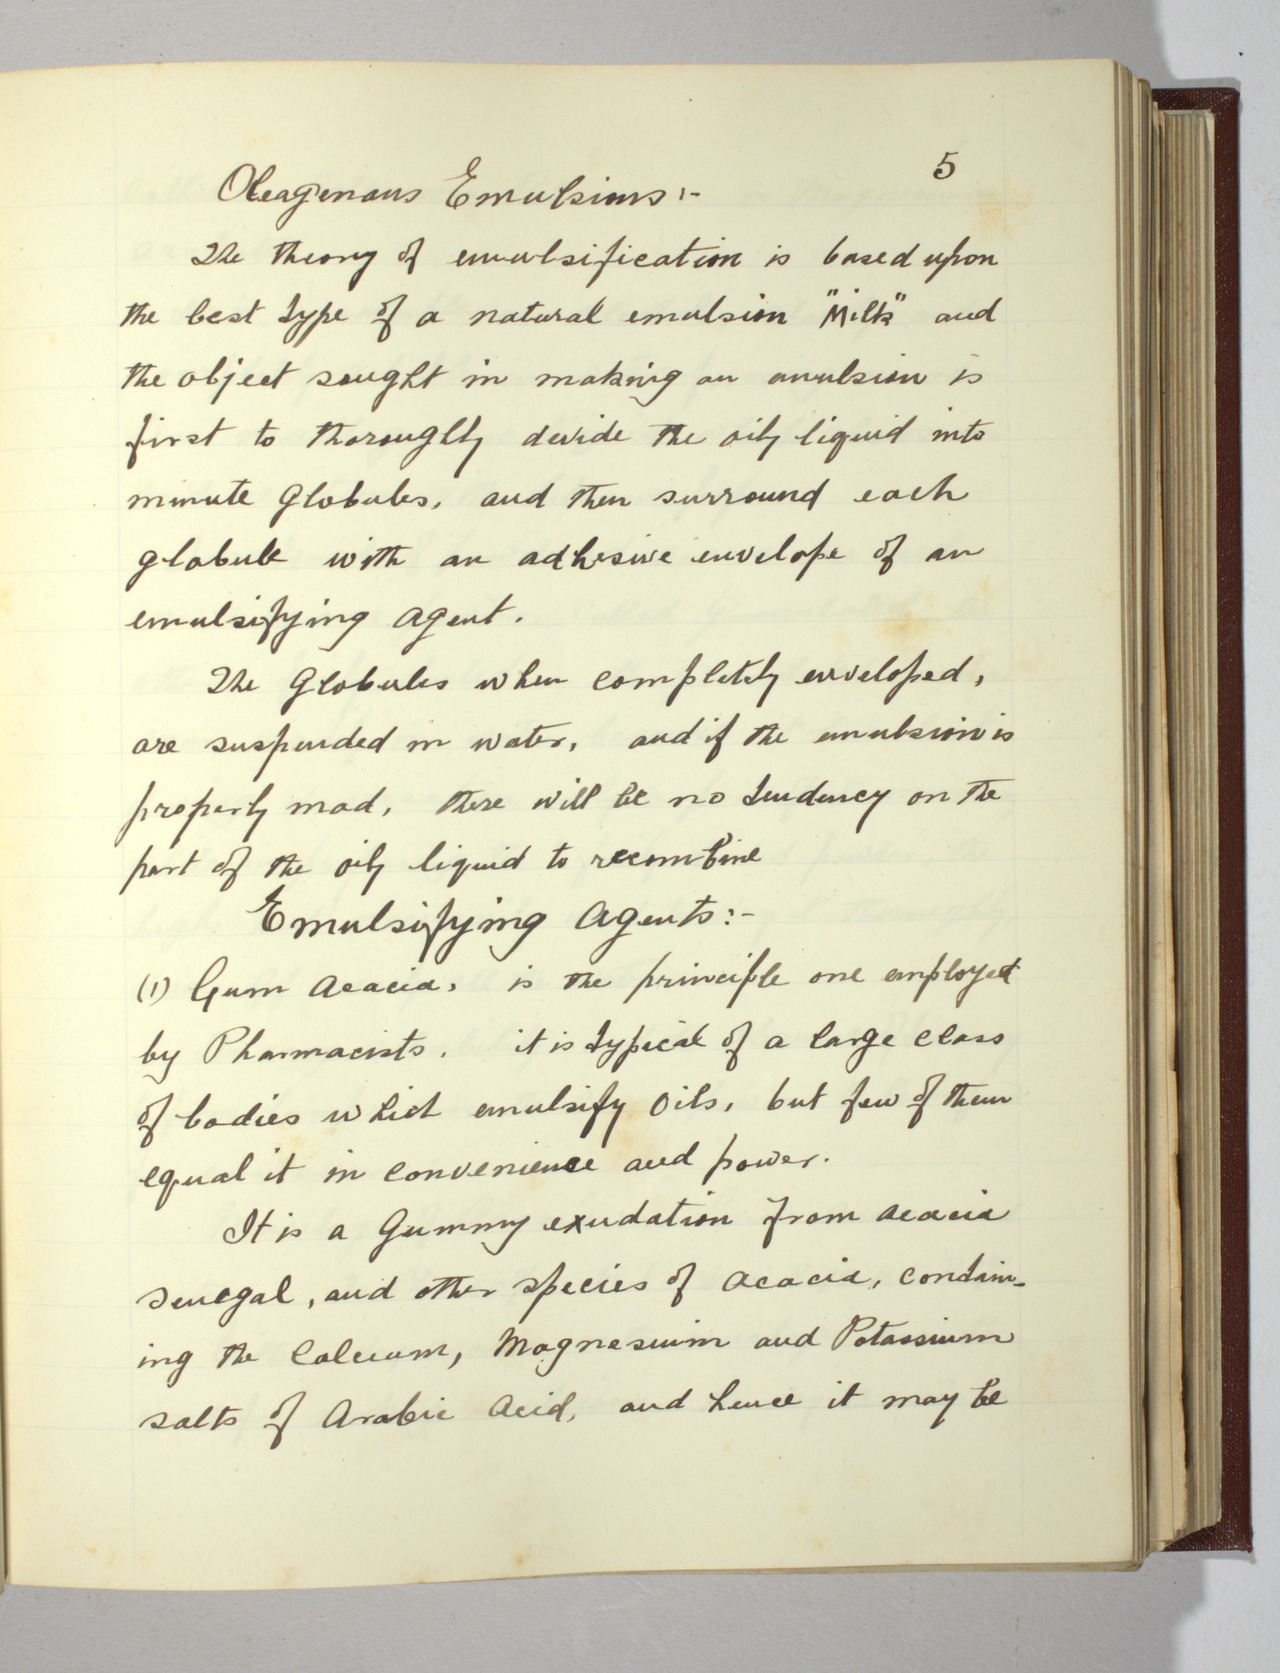 5
Oleagenous Emulsions:-
The theory of emulsification is based upon
the best type of a natural emulsion "Milk" and
the object sought in making an emulsion is
first to thoroughly devide the oily liquid into
minute globules, and then surround each
globule with an adhesive envelope of an
emulsifying agent.
The globules when completely enveloped,
are suspended in water, and if the emulsion is
properly mad, there will be no tendency on the
part of the oily liquid to recombine
Emulsifying Agents:-
(1) Gum Acacia, is the principle one employed
by Pharmacists. it is typical of a large class
of bodies which emulsify oils, but few of them
equal it in convenience and power.
It is a gummy exudation from acacia
senegal, and other species of acacia, contain-
ing the Calcium, Magnesium and Potassium
salts of Arabic Acid, and hence it may be